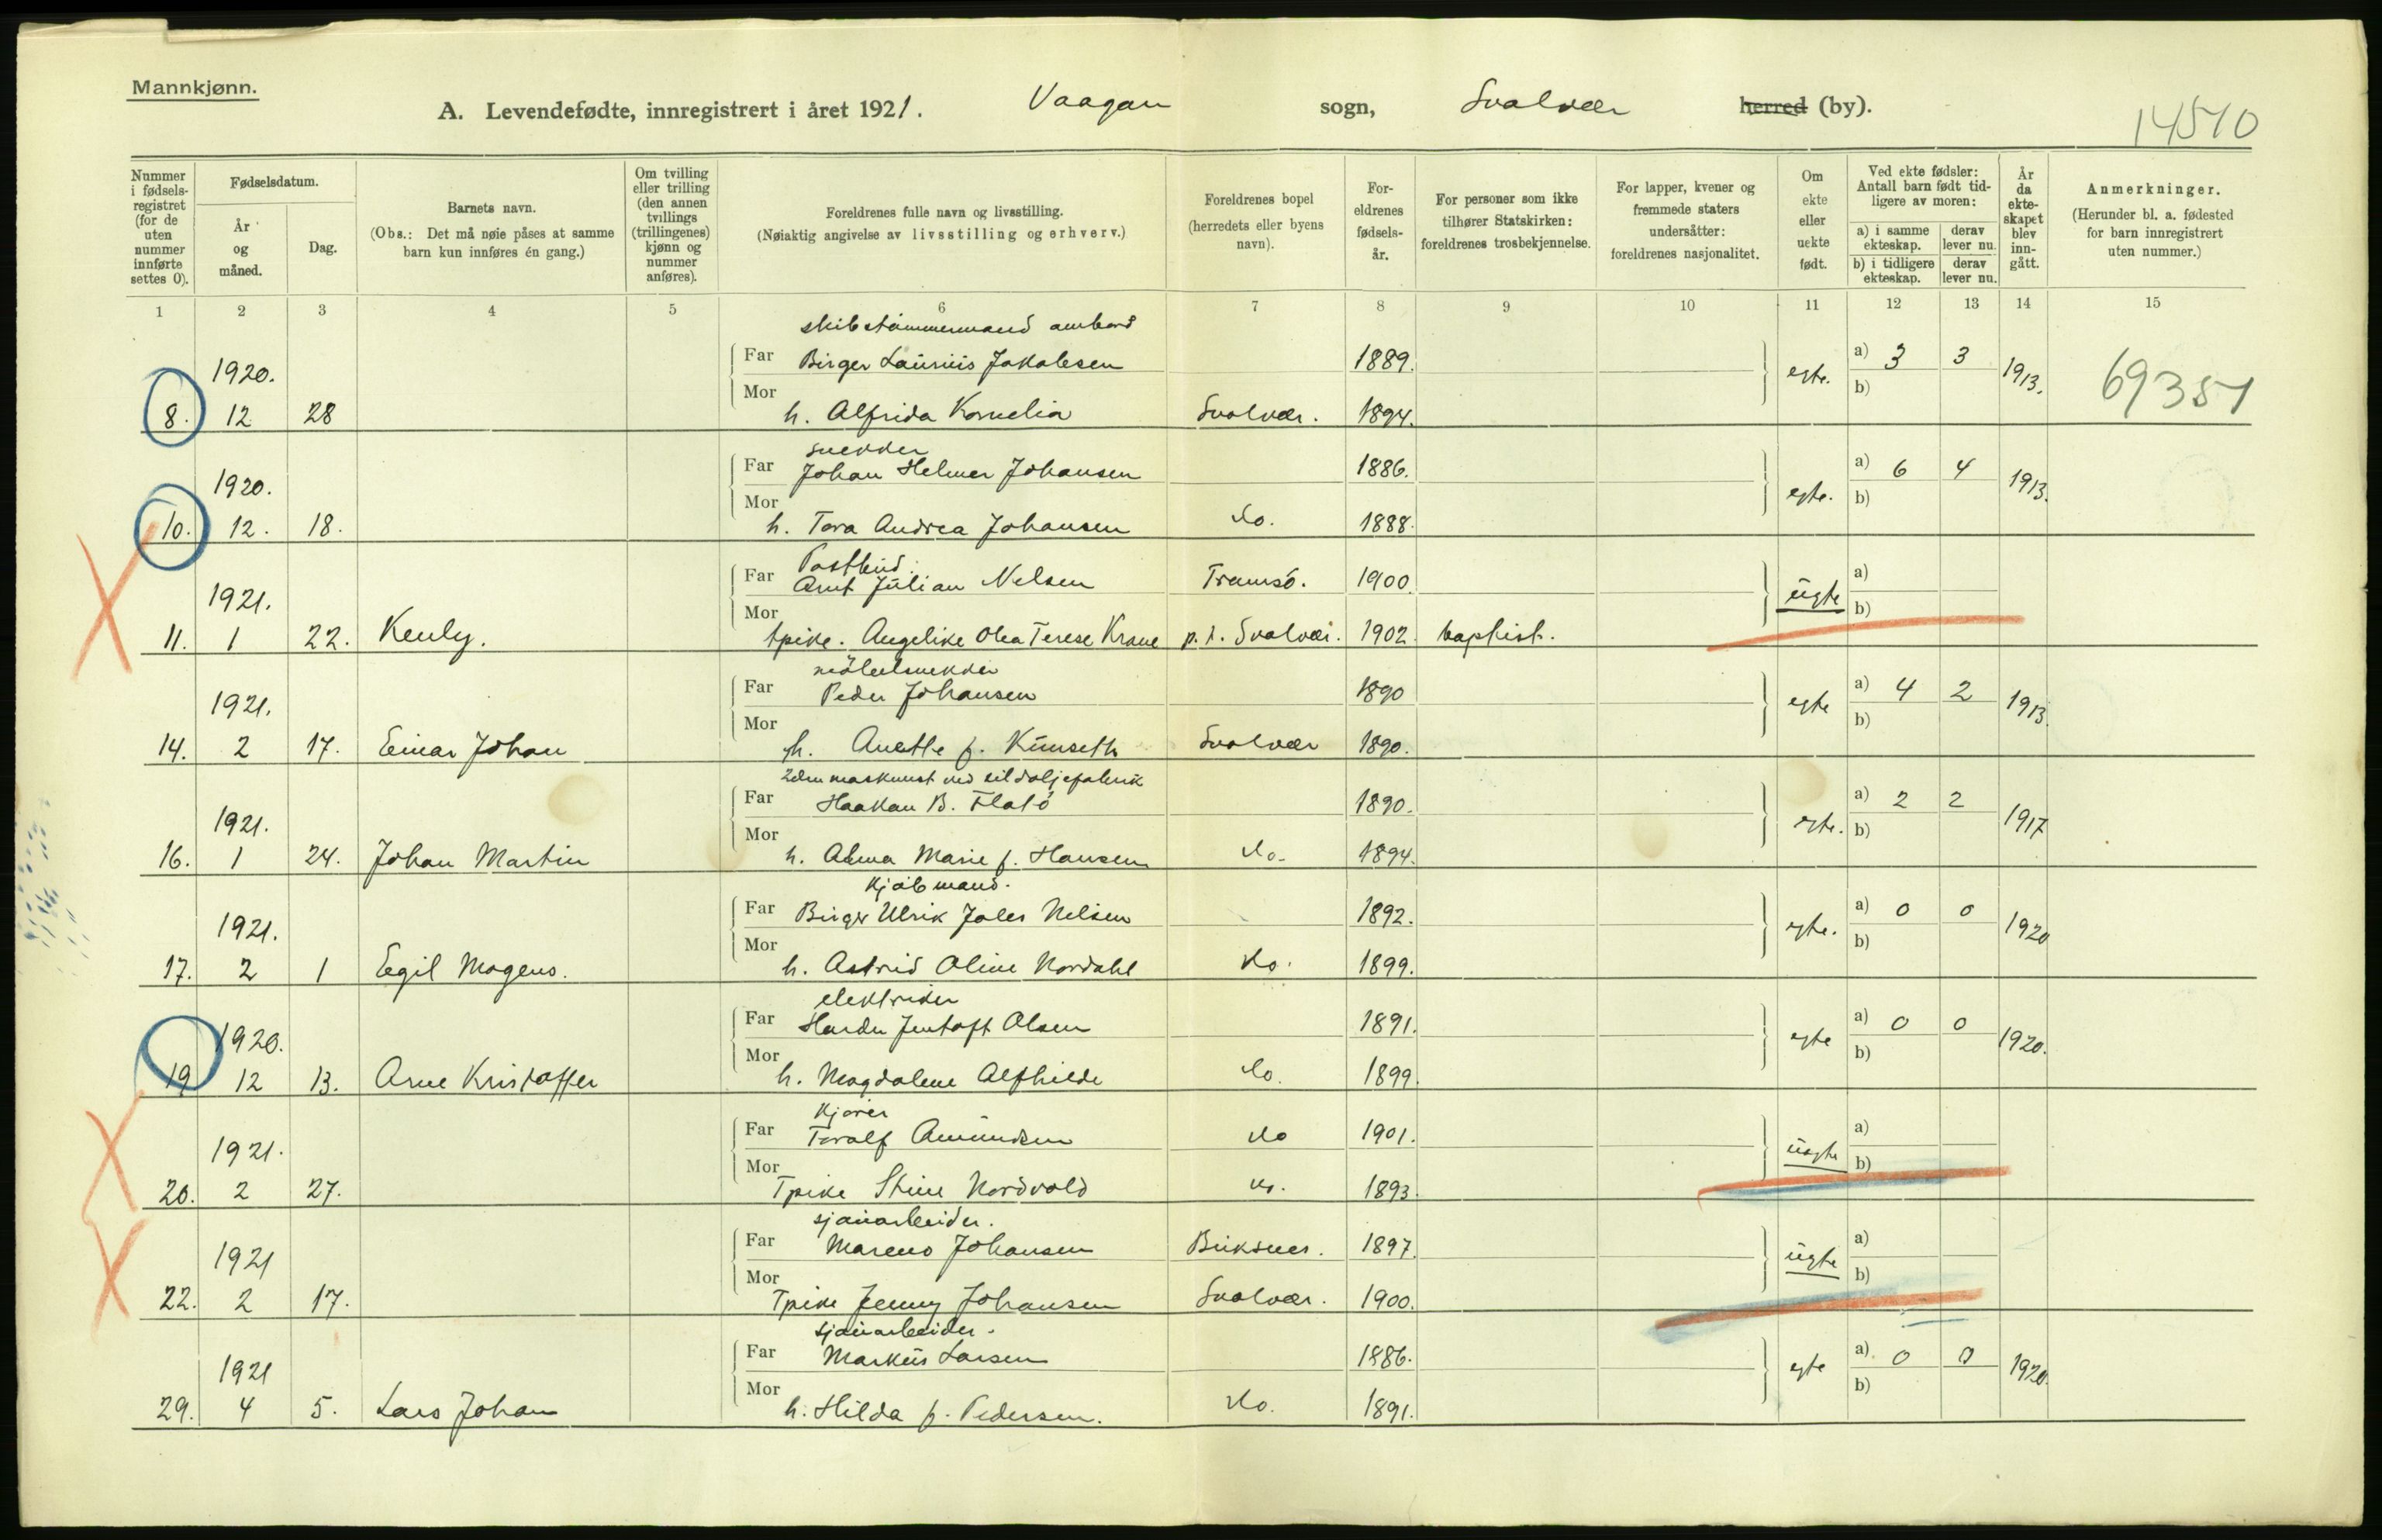 Mannkjønn.
A. Levendefødte, innregistrert i året 1921. Vaagan sogn, Svolvær herred (by).
14510
Nummer i fødselsregistret (for de uten nummer innførte settes 0).
Fødselsdatum.
År og måned.
Dag.
Barnets navn.
(Obs.: Det må nøie påses at samme barn kun innføres én gang.)
Om tvilling eller trilling (den annen tvillings (trillingenes) kjønn og nummer anføres).
Foreldrenes fulle navn og livsstilling.
(Nøiaktig angivelse av livsstilling og erhverv.)
Foreldrenes bopel (herredets eller byens navn).
Foreldrenes fødselsår.
For personer som ikke tilhører Statskirken: foreldrenes trosbekjennelse.
For lapper, kvener og fremmede staters undersåtter: foreldrenes nasjonalitet.
Om ekte eller uekte født.
Ved ekte fødsler: Antall barn født tidligere av moren:
a) i samme ekteskap. derav lever nu.
b) i tidligere ekteskap. derav lever nu.
År da ekteskapet blev inngått.
Anmerkninger.
(Herunder bl. a. fødested for barn innregistrert uten nummer.)
1 2 3 4 5 6 7 8 9 10 11 12 13 14 15
skibstømmermand
Far Birger Laurius Jakobsen 1889. a) 3 3
1920. egte. 1913. 69351
Mor b)
8. 12 28 h. Alfrida Kornelia Svolvær. 1894.
snekker
Far Johan Helmer Johansen 1886. a) 6 4
1920. egte. 1913.
Mor b)
10. 12. 18. h. Tora Andrea Johansen do. 1888.
Postbud.
Far Arnt Julian Nelsen Tromsö. 1900 a)
1921. uegte
Mor b)
11. 1 22. Kenly. tpike. Angelike Olea Terese Krane p.t. Svolvær. 1902. baptist.
möbelsnekker
Far Peder Johansen 1890 a) 4 2
1921. egte 1913.
Mor b)
14. 2 17. Einar Johan h. Anette f. Svolvær 1890.
2den maskinist ved sildoljefabrik
Far Haakon B. Flatö 1890. a) 2 2
1921. egte. 1917
Mor b)
16. 1 24. Johan Martin h. Alma Marie f. Hansen do. 1894.
Kjöbmand.
Far Birger Ulrik Nelsen 1892. a) 0 0
1921. egte. 1920
Mor b)
17. 2 1 Egil Mogens. h. Astrid Oline Nordahl do. 1899.
elektriker
Far Jentoft Olsen 1891. a) 0 0
1920. egte 1920.
Mor b)
19 12 13. Arne Kristoffer h. Magdalene Alfhilde do. 1899
Kjörer
Far Toralf Amundsen do 1901. a)
1921. uegte
Mor b)
20. 2 27. Tpike Stine Nordvold do. 1893.
sjauarbeider.
Far Mareno Johansen Buksnes. 1897. a)
1921 uegte
Mor b)
22. 2 17. Tpike Jenny Johansen Svolvær. 1900.
sjauarbeider.
Far Markus Larsen 1886. a) 0 0
1921 egte 1920.
Mor b)
29. 4 5. Lars Johan h. Hilda f. Pedersen. do. 1891.